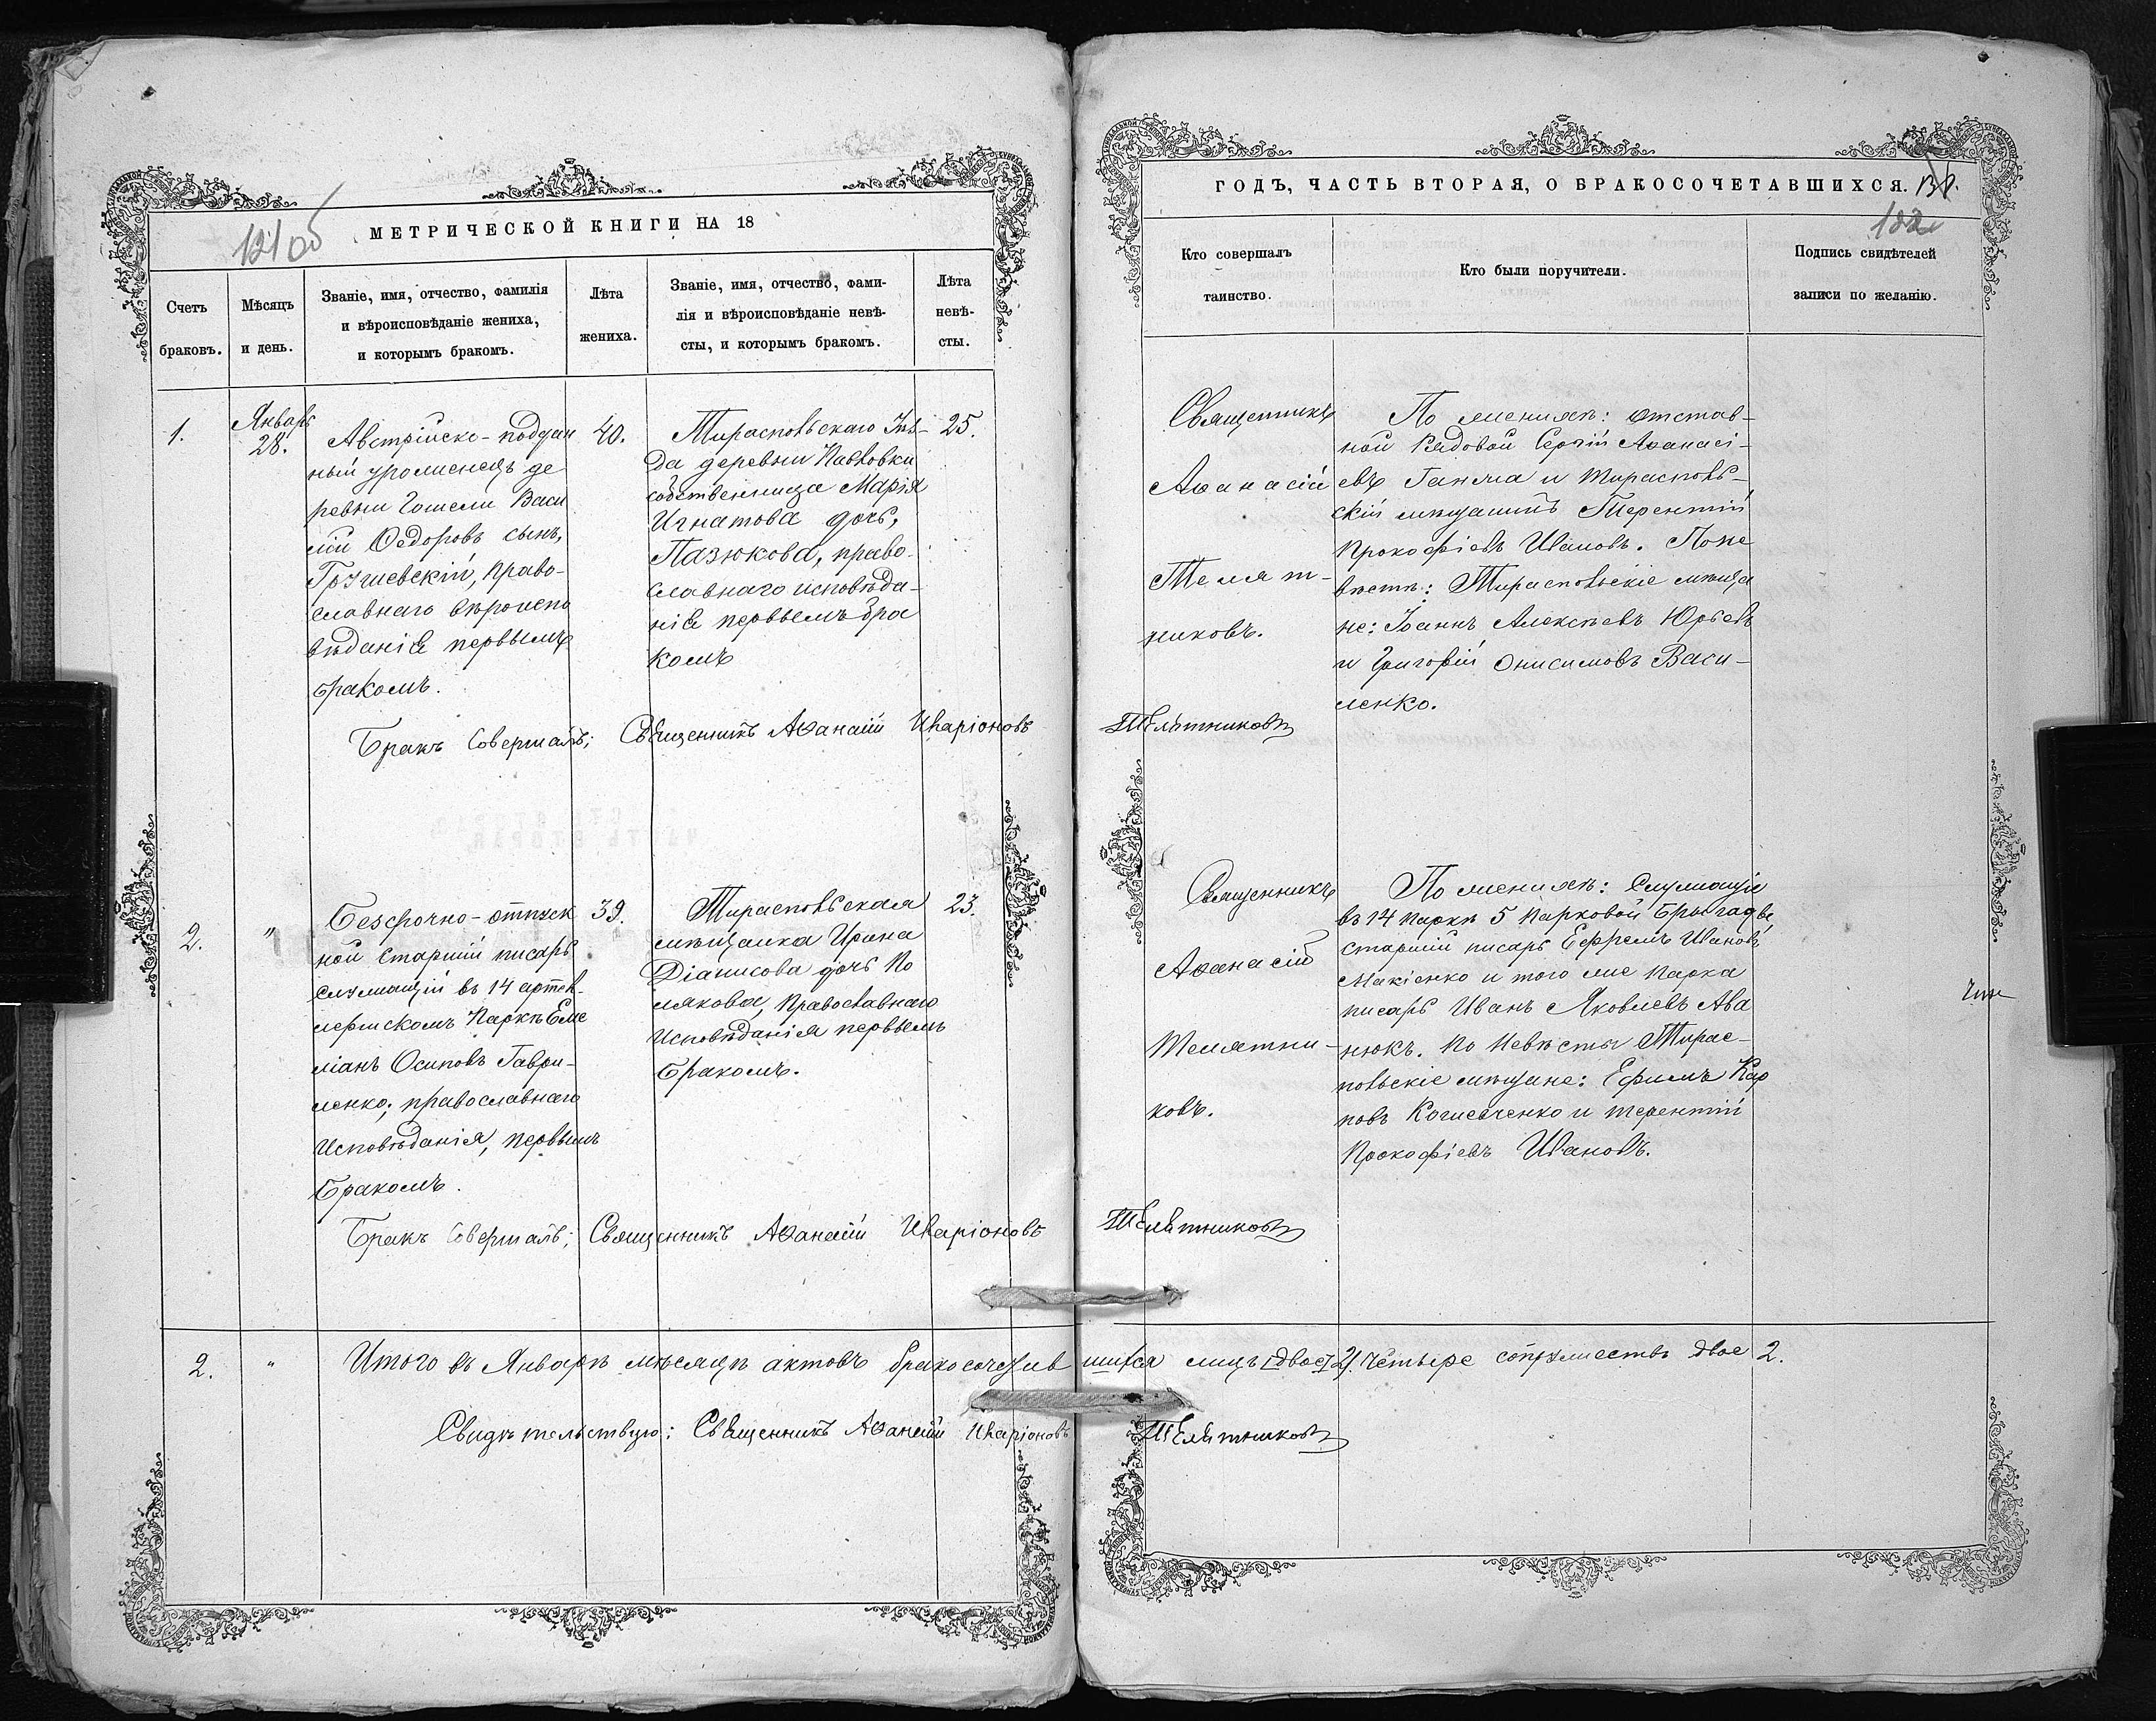 121 об
МЕТРИЧЕСКОЙ КНИГИ НА 18
Счетъ
браковъ.
Мѣсяцъ
и день.
Званіе, имя, отчество, фамилія
и вѣроисповѣданіе жениха,
и которымъ бракомъ.
Лѣта
жениха.
Званіе, имя, отчество, фами-
лія и вѣроисповѣданіе невѣ-
сты, и которымъ бракомъ.
Лѣта
невѣ-
сты.
1.
Январь
28.
Австрійско-поддан
ный уроженецъ де
ревни Гошели Васи
лій Ѳедоровъ сынъ,
право-
славнаго вѣроиспо
вѣданія первымъ
бракомъ.
40.
Тираспольскаго Уѣз-
да деревни Павловки
собственница Марія
Игнатова дочь,
Пазюкова, право-
славнаго исповѣда-
нія первымъ бра
комъ
25.
Бракъ совершалъ; Священникъ Аѳанасій Иларіоновъ
2.
"
Безсрочно-отпуск
ной старшій писарь
служащій въ 14 артил-
лерійскомъ Паркѣ Еме
ліанъ Осиповъ Гаври-
ленко; православнаго
Исповѣданія, первымъ
бракомъ.
39.
Тираспольская
мѣщанка Ирина
Діанисова дочь По
лякова, Православнаго
Исповѣданія первымъ
бракомъ.
23.
Бракъ совершалъ; Священникъ Аѳанасій Иларіоновъ
2.
"
Итого въ Январѣ мѣсяцѣ актовъ бракосочетав
Свидѣтельствую: Священникъ Аѳанасій Иларіоновъ
ГОДЪ, ЧАСТЬ ВТОРАЯ, О БРАКОСОЧЕТАВШИХСЯ.
122
Кто совершалъ
таинство.
Кто были поручители.
Подпись свидѣтелей
записи по желанію.
Священникъ
Аѳанасій
Телят-
никовъ.
По женихѣ: отстав-
ной Рядовой Сергій Аѳанасі-
евъ Ганжа и Тирасполь-
скій мѣщанинъ Терентій
Прокофіевъ Ивановъ. По не
вѣстѣ: Тираспольскіе мѣща
не: Іоаннъ Алексѣевъ Юрьевъ
и Григорій Онисимовъ Васи-
ленко.
Телятниковъ
Священникъ
Аѳанасій
Телятни-
ковъ.
По женихѣ: служащіе
въ 14 паркѣ 5 Парковой Бригады
старшій писарь Ефремъ Ивановъ
Макіенко и того же Парка
писарь Иванъ Яковлевъ Ава
нюкъ. По невѣсты Тирас-
польскіе мѣщане: Ефимъ Кар
повъ и Терентій
Прокофіевъ Ивановъ.
Телятниковъ
шихся лицъ [двое] 2/ четыре супружествъ двое 2.
Телятниковъ